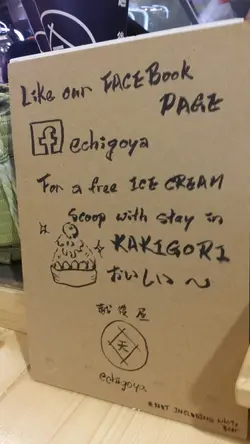 Like our FACEBook
PAGE
f echigoya
For a free ICE CREAM
Scoop with stay in
KAKIGORI
おいしい〜
越後屋
天
echigoya
* NOT INCLUDING